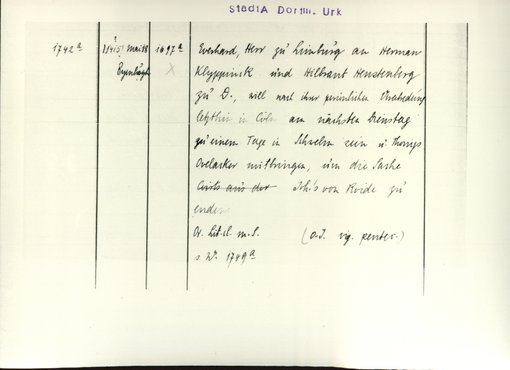 Stadt A Dortm. Urk
1742a
1697a
Everhard, Herr zu Limburg an Herman
Kleppinik und Hilbrant Henstenberg
zu D., will nach ihrer persönlichen Unterredung
letzthin in Cöln am nächsten Dienstag
zu einem Tage in Schwelm sein u. Thonys
Ovelacker mitbringen, um die Sache
aus der Joh's von Reide zu
enden
Or. m. S. (a.T. vig. pentec.)
s. W. 1749a